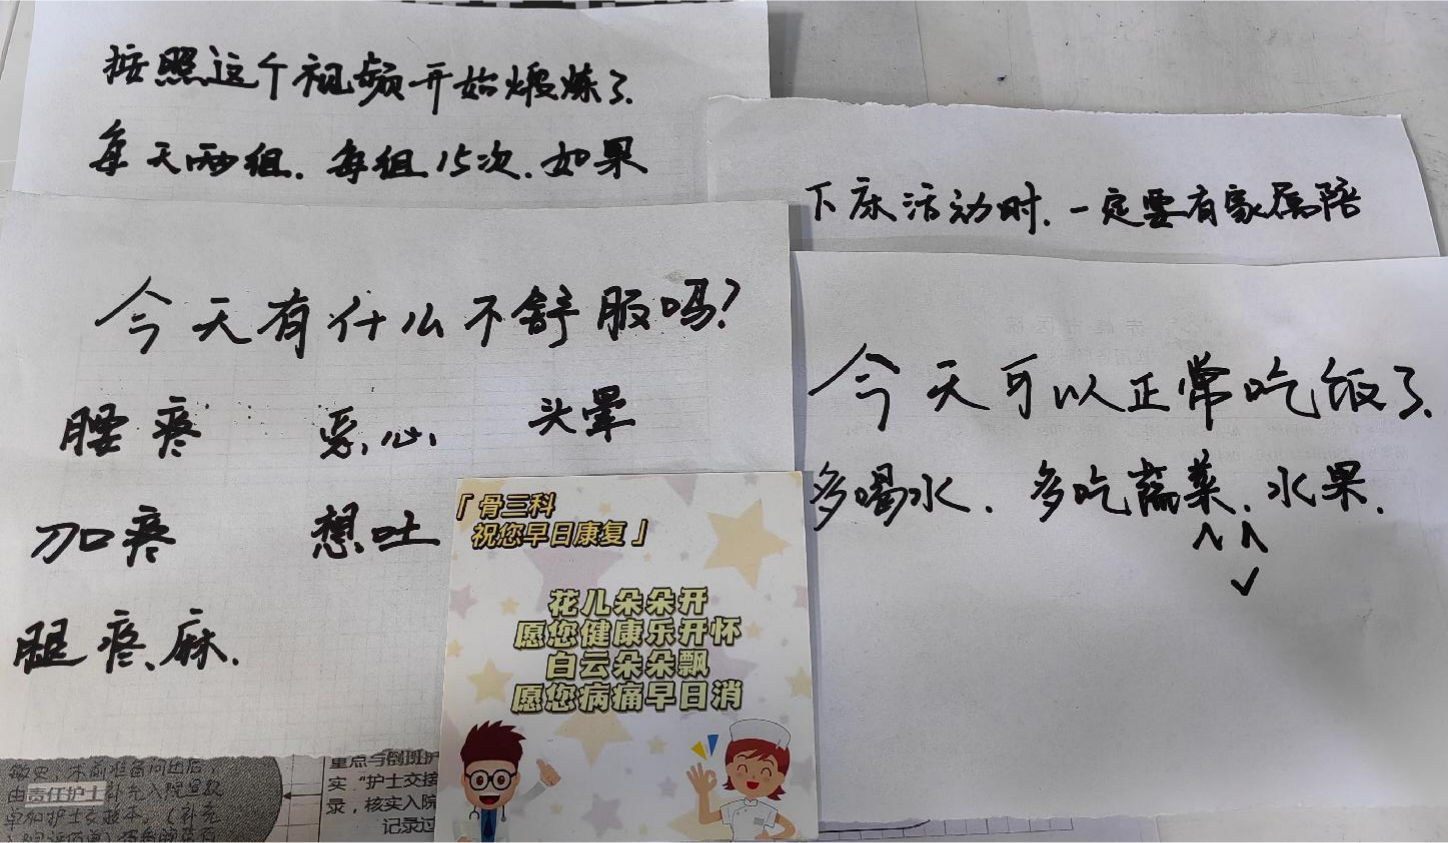 按照这个视频开始煅炼了.
每天两组.每组15次.如果
下床活动时.一定要有家属陪
今天有什么不舒服吗?
腰疼 恶心 头晕
刀口疼 想吐
腿疼、麻.
今天可以正常吃饭了.
多喝水.多吃蔬菜.水果.
「骨三科
祝您早日康复」
花儿朵朵开
愿您健康乐开怀
白云朵朵飘
愿您病痛早日消
由责任护士补充入院宣教
重点与倒班护
实“护士交接
录，核实入院
记录过